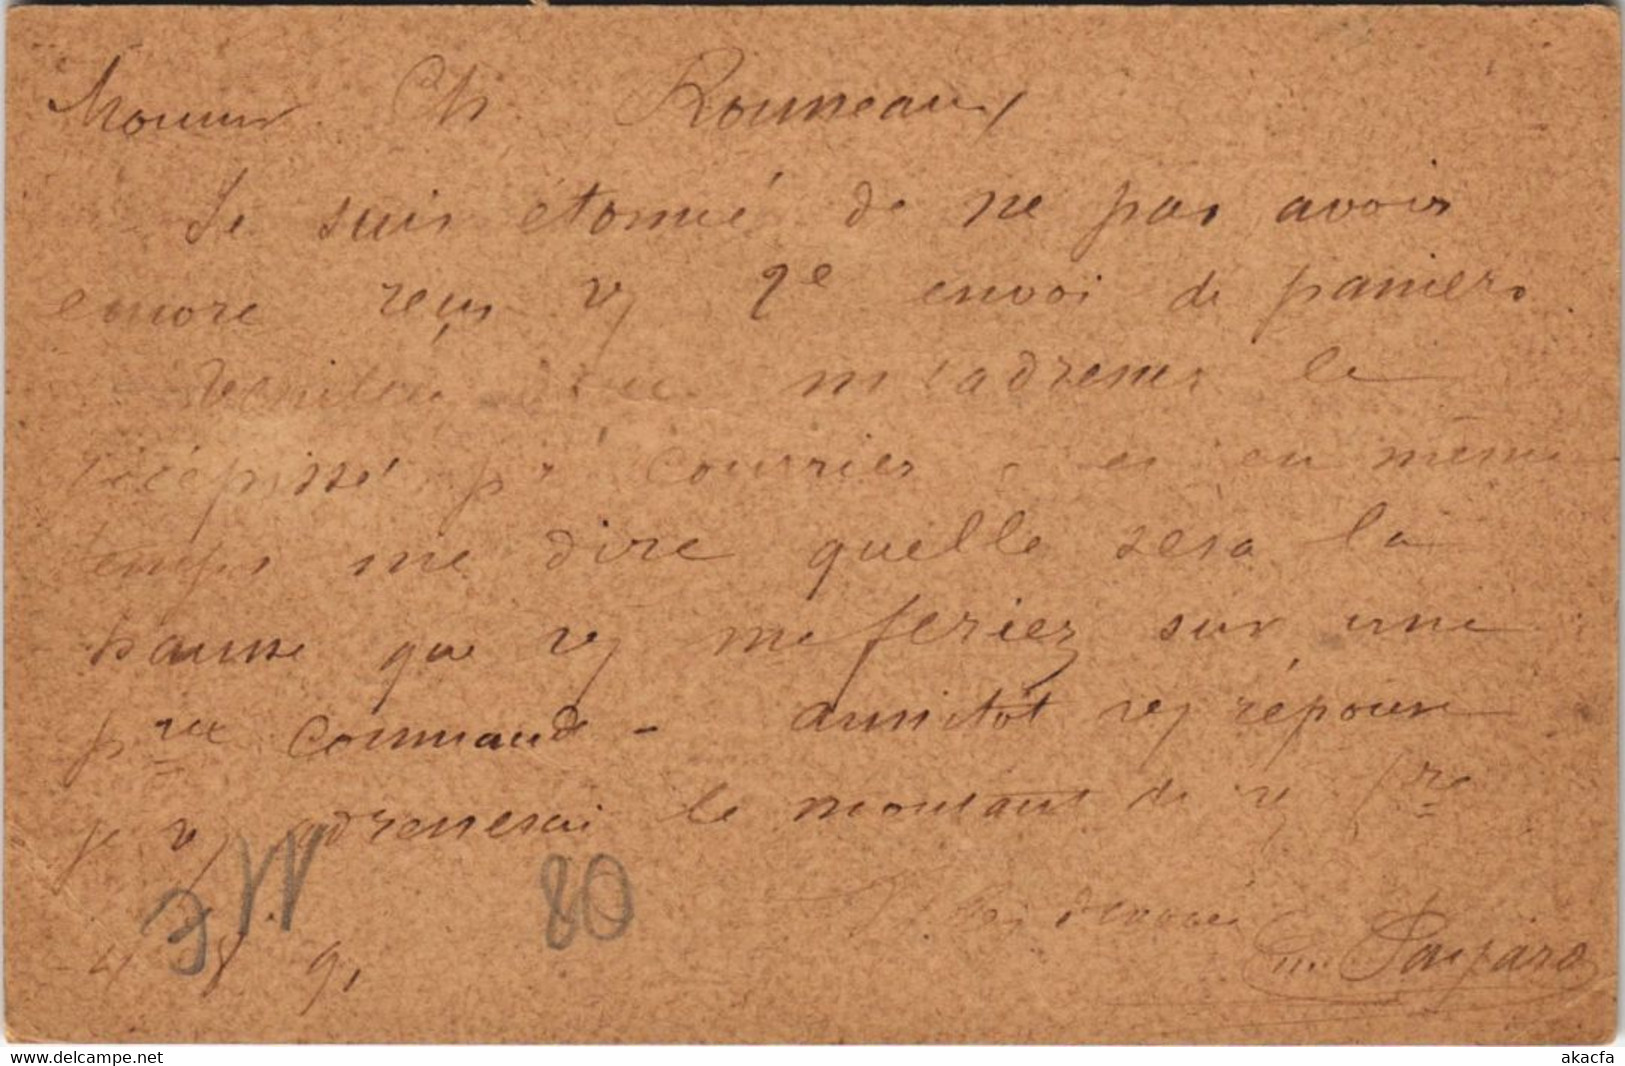 Monsieur Ch Rouneaux
Je suis étonné de ne pas avoir
encore reçu vs 2e envoi de paniers
Veuillez donc m'adresser le
récépissé pr courrier et en même
temps me dire quelle sera la
hausse que vs me feriez sur une
pre commande - aussitôt vs réponse
je vs adresserai le montant de vs fre
80
devoué
4 8 91
www.delcampe.net
akacfa